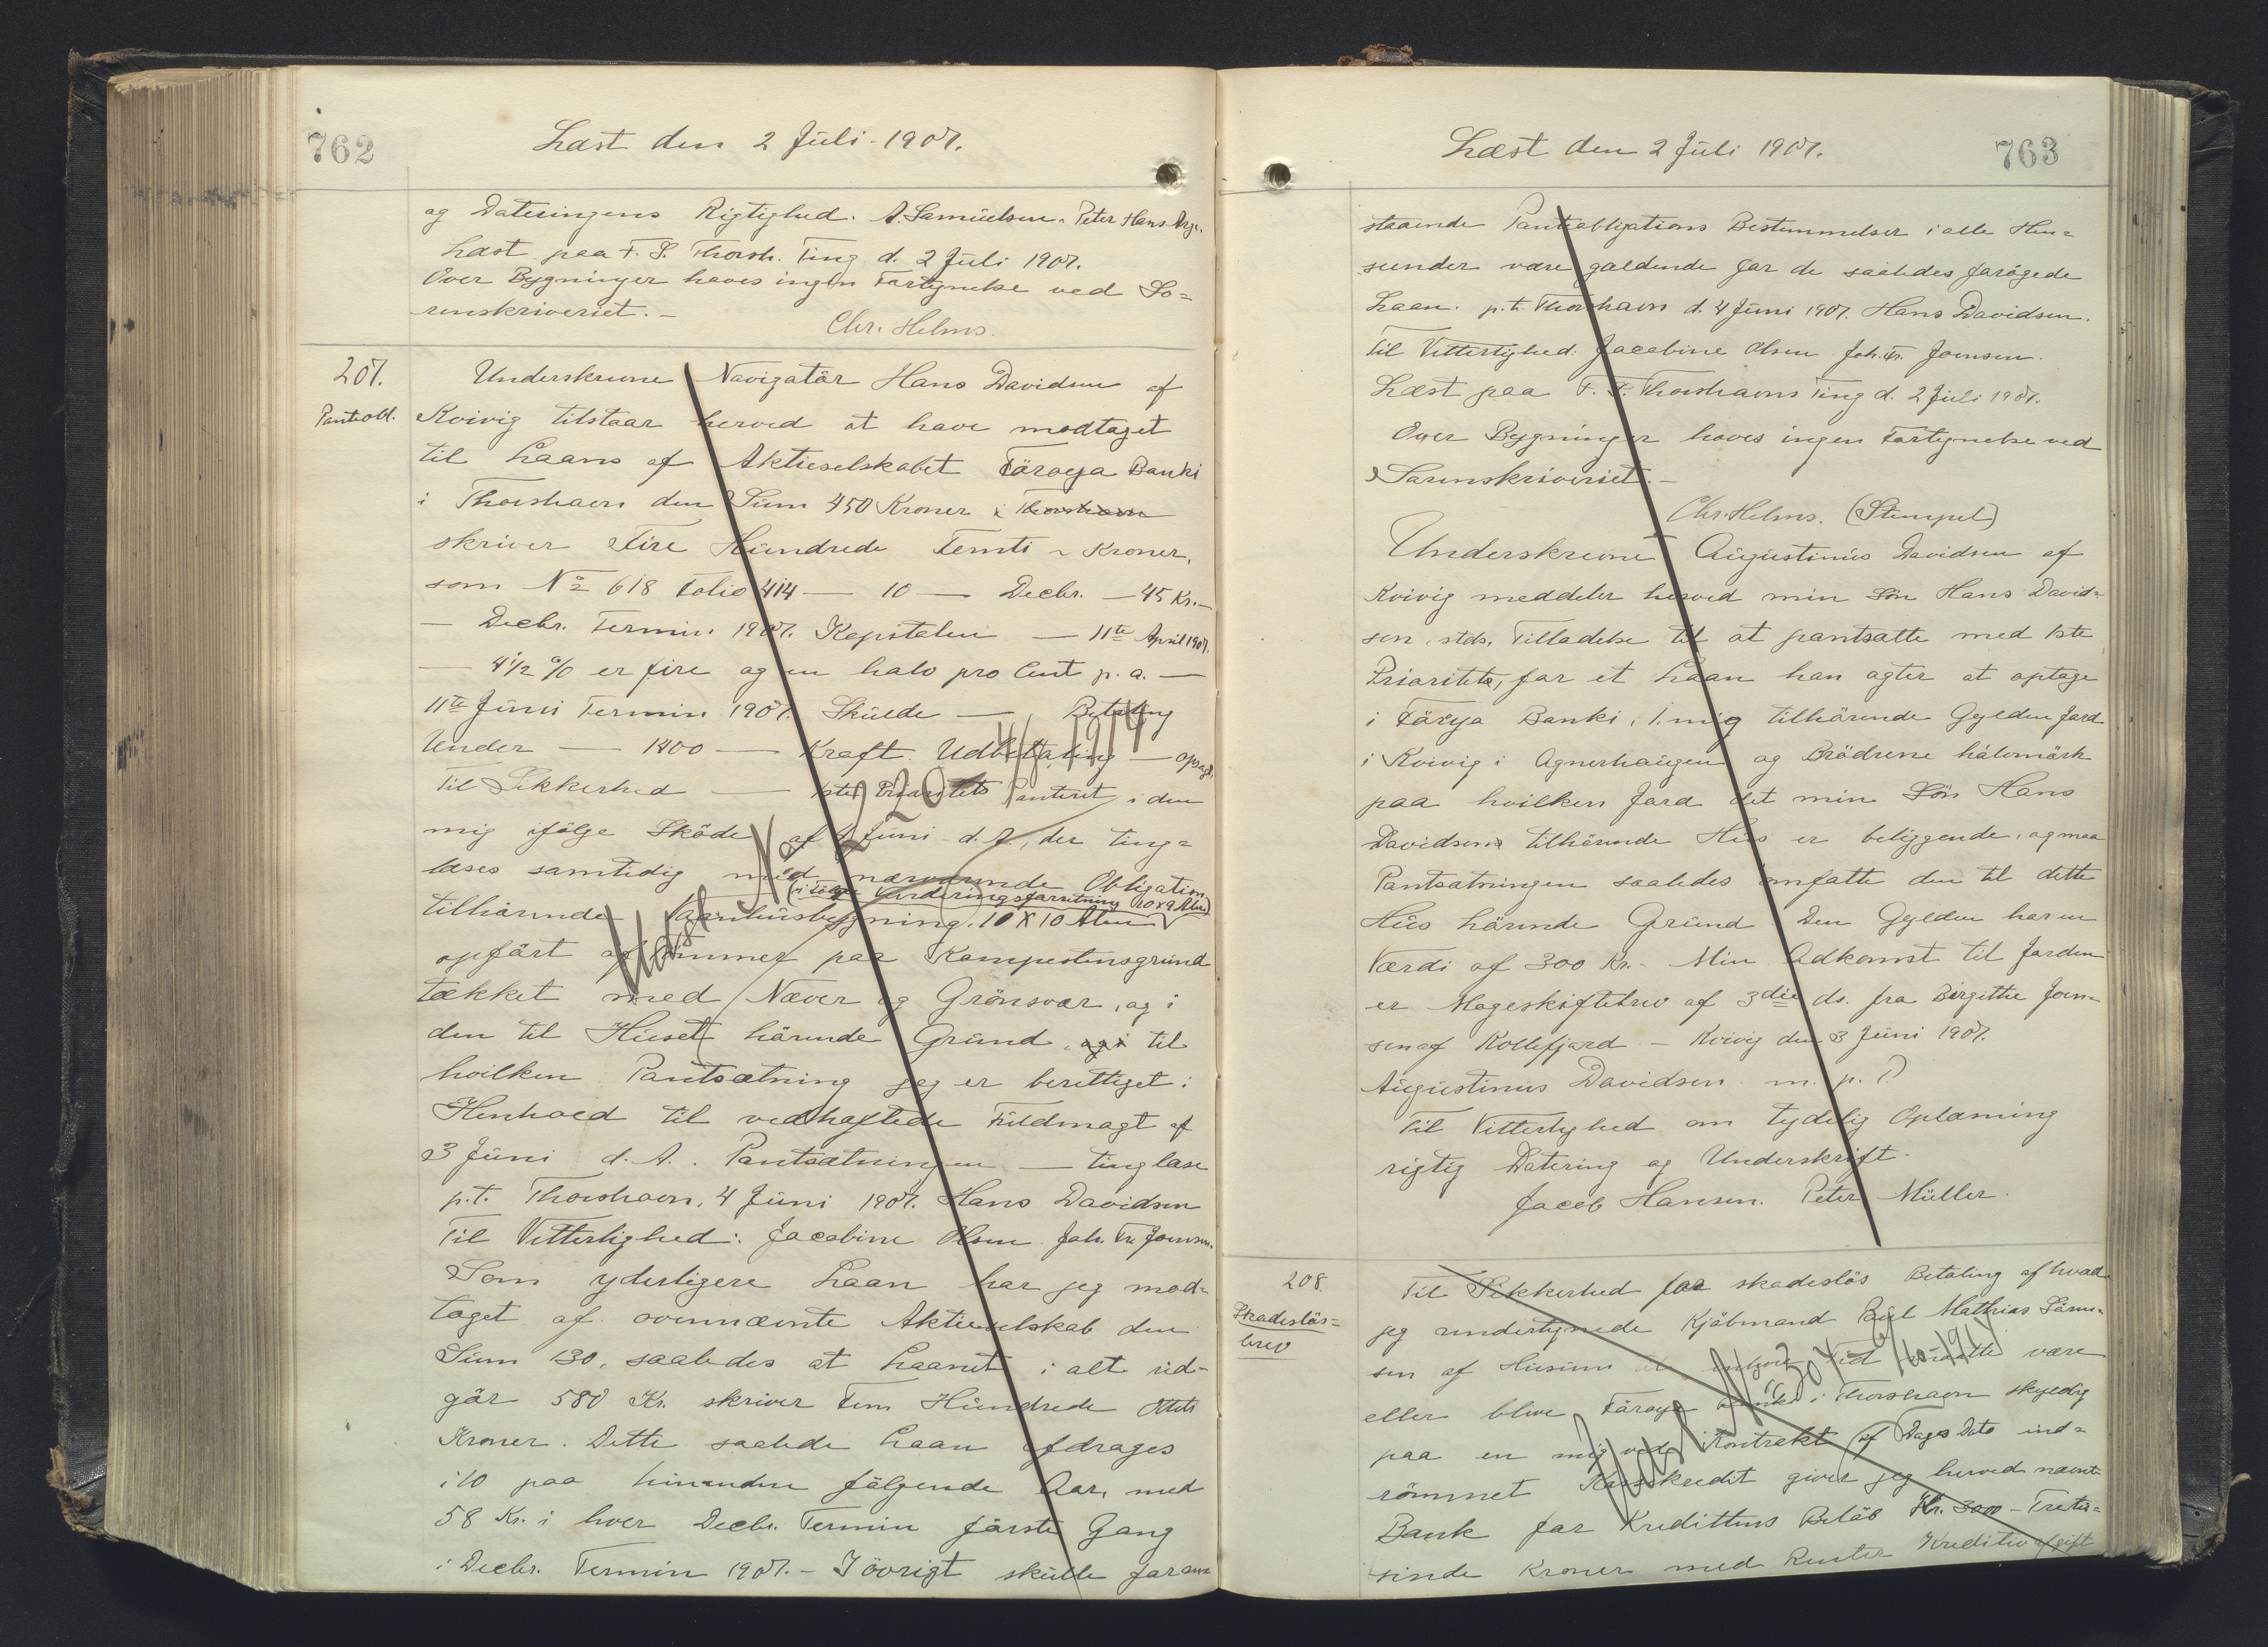 762
Læst den 2 Juli 1907.
og Dateringens Rigtighed. A. Samuelsen. Peter Hans
Læst paa F. S. Thorsh. Ting d. 2 Juli 1907.
Over Bygninger haves ingen Fortegnelse ved So=
renskriveriet. –
Chr. Helms.
207.
Pantobl.
Underskrevne Navigatör Hans Davidsen af
Kvivig tilstaar herved at have modtaget
til Laans af Aktieselskabet Färoya Banki
i Thorshavn den Sum 450 Kroner i Thorshavn
skriver Fire Hundrede Femti Kroner,
som No 618 Folio 414 — 10 — Decbr. — 45 Kr. –
— Decbr. Termin 1907. Kapitalen — 11te April 1907.
— 4 1/2 % er fire og en halv pro Cent p. a. —
11te Juni Termin 1907. Skulde — Betaling
Under — 1400 — Kraft Udbetaling — opsagt.
Til Sikkerhed — 1ste Prioritets Panteret i den
mig ifölge Sköde af 4 Juni d. A., der ting=
læses samtidig med nærværende Obligation
(ifölge Vurderingsforretning 10 x 9 Alen)
tilhörende Vaanhusbygning, 10 X 10 Alen
opfört af Tömmer paa Kampestensgrund
tækket med Næver og Grönsvær, og i
den til Huset hörende Grund, og i til
hvilken Pantsætning jeg er berettiget i
Henhold til vedhæftede Fuldmagt af
3 Juni d. A. Pantsætningen — tinglæse
p.t. Thorshavn, 4 Juni 1907. Hans Davidsen
Til Vitterlighed: Jacobine Olsen. Joh. Fr. Joensen.
Som yderligere Laan har jeg mod=
taget af ovennævnte Aktieselskab den
Sum 130, saaledes at Laanet i alt ud=
gör 580 Kr. skriver Fem Hundrede Otteti
Kroner. Dette saalede Laan afdrages
i 10 paa hinanden fölgende Aar, med
58 Kr. i hver Decbr. Termin förste Gang
i Decbr. Termin 1907. – I övrigt skulle foran
763
Læst den 2 Juli 1907.
staaende Pantobligations Bestemmelser i alle Hen=
seender være gældende for de saaledes forögede
Laan. p. t. Thorshavn d. 4 Juni 1907. Hans Davidsen.
Til Vitterlighed: Jacobine Olsen Joh. Fr. Joensen.
Læst paa F. S. Thorshavns Ting d. 2 Juli 1907.
Over Bygninger haves ingen Fortegnelse ved
Sorenskriveriet. –
Chr. Helms. (Stempel)
Underskrevne Augustinus Davidsen af
Kvivig meddeler herved min Sön Hans David=
sen stds. Tilladelse til at pantsætte med 1ste
Prioritets, for et Laan han agter at optage
i Färoya Banki, i mig tilhörende Gylden Jord
i Kvivig i Agnerhaugen og Brödrene hálvmörk
paa hvilken Jord det min Sön Hans
Davidsens tilhörende Hus er beliggende, og maa
Pantsætningen saaledes omfatte den til dette
Hus hörende Grund Den Gylden har en
Værdi af 300 Kr. – Min Adkomst til Jorden
er Mageskiftebrev af 3die ds. fra Birgitte Joen=
sen af Kollefjord – Kvivig den 3 Juni 1907.
Augustinus Davidsen m. p. P.
Til Vitterlighed om tydelig Oplæsning
rigtig Datering og Underskrift.
Jacob Hansen. Peter Müller.
208.
Skadeslös=
brev
Til Sikkerhed for skadeslös Betaling af hvad
jeg undertegnede Kjöbmand Poul Mathias
sen af Husum til enhver Tid maatte være
eller blive Färoya Banki i Thorshavn skyldig
paa en mig ved Kontrakt af Dags Dato ind=
römmet Kassekredit giver jeg herved nævnte
Bank for Kredittens Belöb Kr. 3000 – Tretu=
sinde Kroner med Renter Kreditivafgift